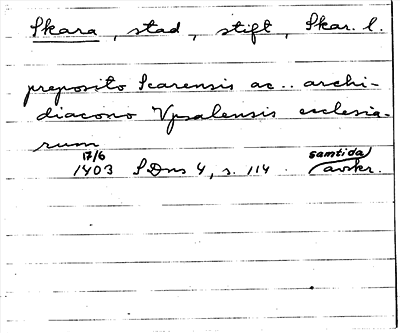 Skara, stad, stift, Skar. l.
preposito Scarensis ac .. archi-
diacono Vpsalensis ecclesia-
rum
17/6 samtida
1403 SDns 4, s. 114. avskr.